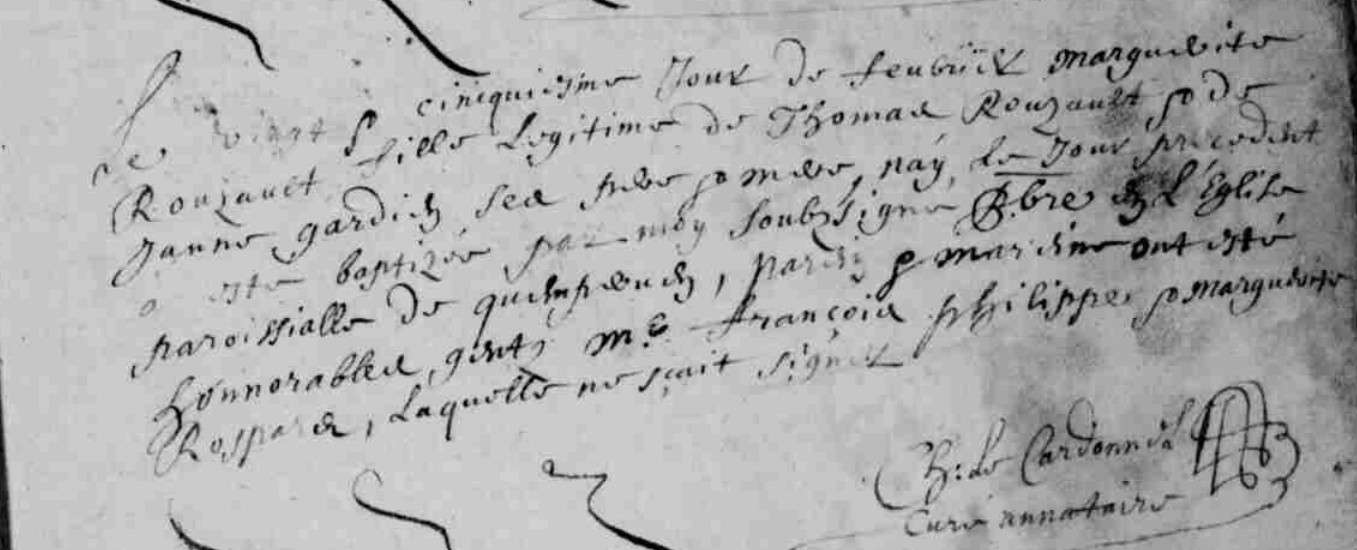 Le vingt cincquiesme Jour de feubvrier marguerite
Rouzault fille Legitime de Thomas Rouzault & de
Janne gardien ses pere & mere, nay le Jour precedent
a esté baptizée par moy soubzsigné Pbre en L'Eglise
paroissialle de , parain & maraine ont esté
honnorables gents me François philippes & marguerite
Rospars, Laquelle ne sçait signer
Ch: Le Cardonnal
Curé annataire